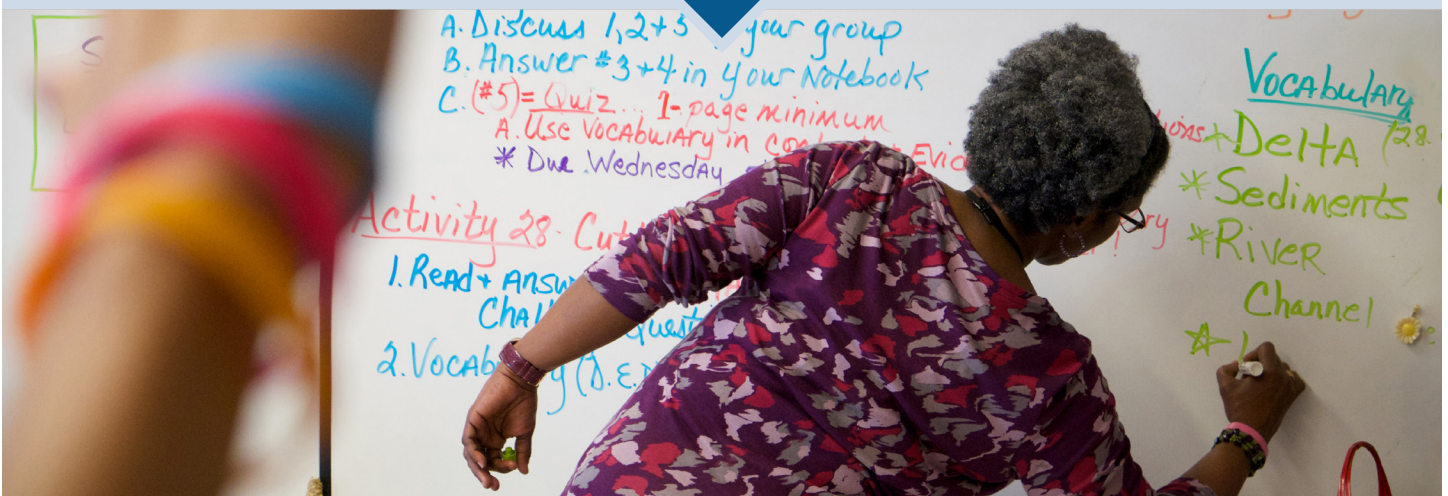 A. Discuss 1, 2 + 3 your group
B. Answer #3 + 4 in your Notebook
C. (#5) = Quiz... 1-page minimum
A. Use Vocabulary in
* Due Wednesday
Activity 28.
1. Read + Answ
Quest
2. Vocab y (D.E.
Vocabulary
Delta
* Sediments
* River
Channel